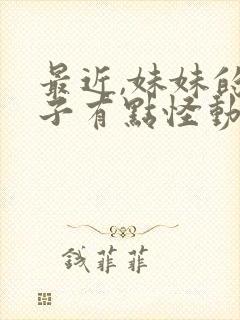 最近,妹妹的
子有點怪動
錢菲菲